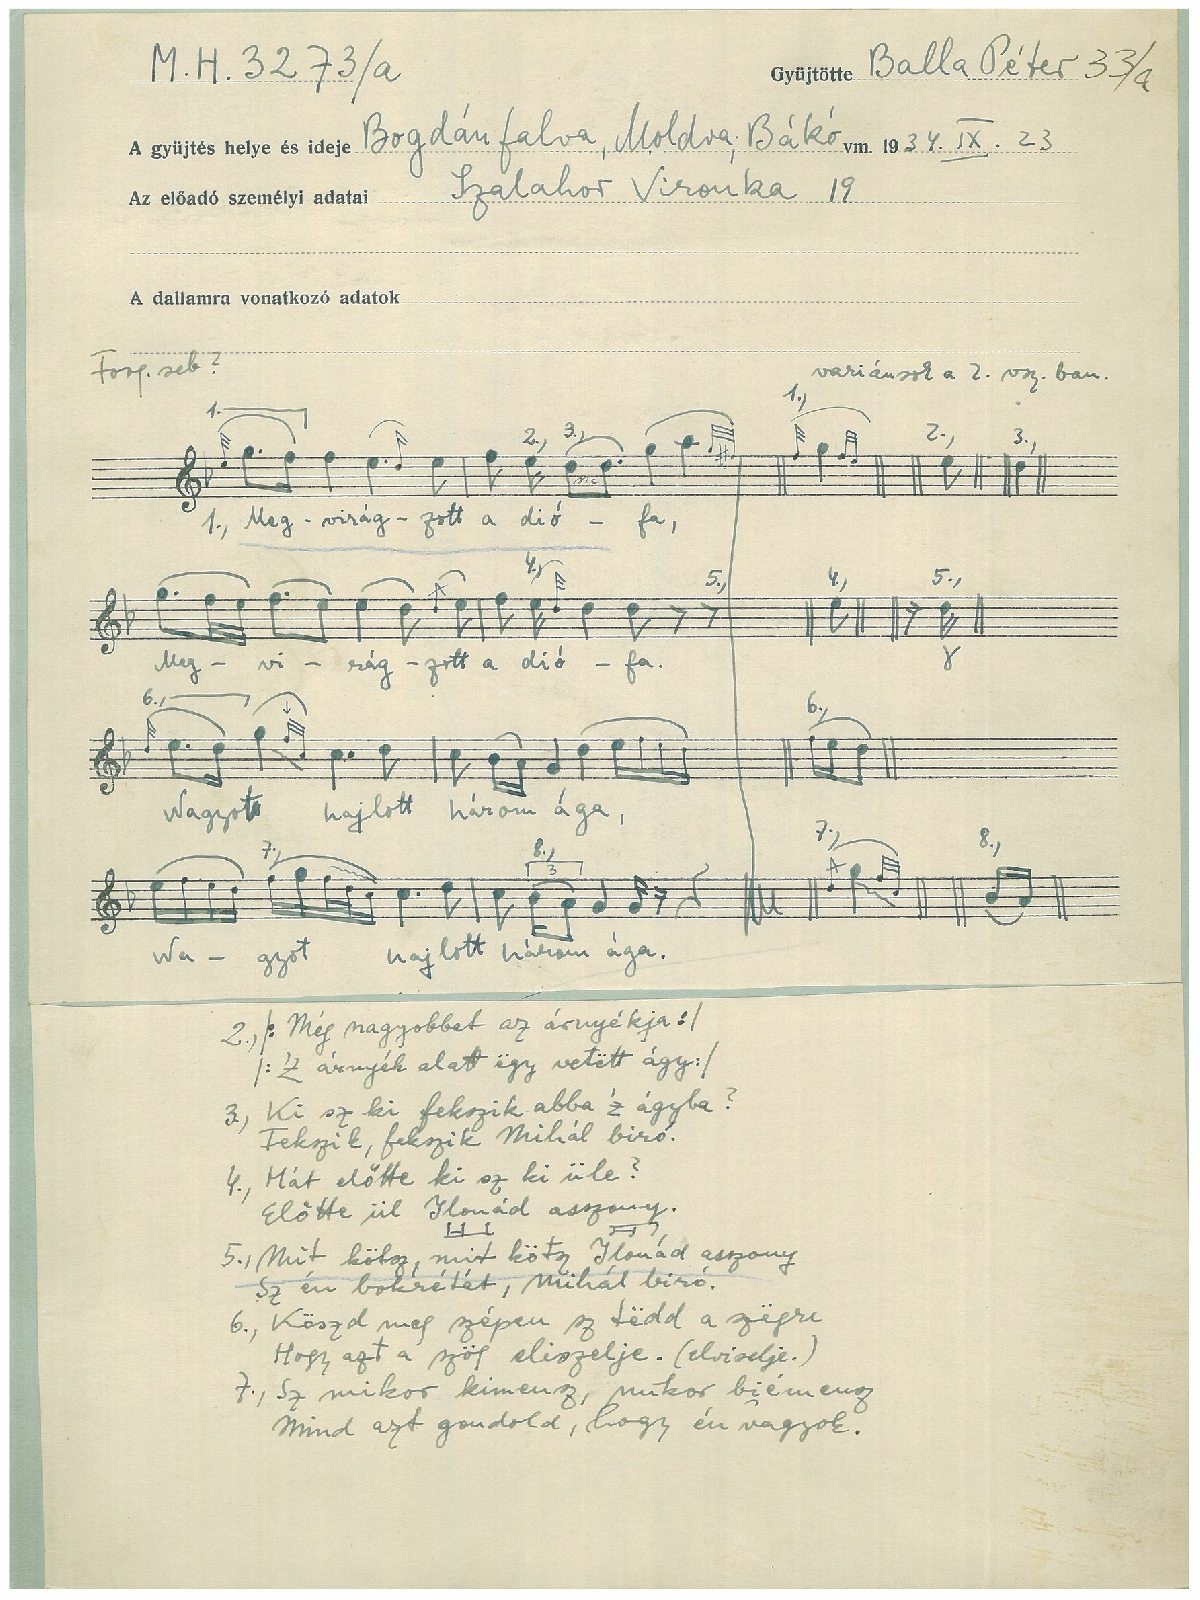 M.H. 3273/a
Gyüjtötte Balla Péter 33/a
A gyüjtés helye és ideje Bogdánfalva, Moldva, Bákó vm. 1934. IX. 23
Az előadó személyi adatai Szalahor Vironka 19
A dallamra vonatkozó adatok
Forg. seb?
variánsok a 2. vsz. ban.
1. 2., 3., 1., 2., 3.,
1., Meg - virág - zott a dió - fa,
4., 5., 4., 5.,
Meg - vi - rág - zott a dió - fa.
6., 6.,
Nagyot hajlott három ága,
7., 8., 3 7., 8.,
Na - gyot hajlott három ága.
2., |: Még nagyobbat az árnyékja :|
|: 'Z árnyék alatt ëgy vetëtt ágy :|
3., Ki sz ki fekszik abba 'z ágyba?
Fekszik, fekszik Mihál biró.
4., Hát előtte ki sz ki üle?
Előtte ül Ilonád asszony.
5., Mit kötsz, mit kötsz Ilonád asszony
Sz én bokrétát, Mihál biró.
6., Köszd meg szépen sz tëdd a szëgre
Hogy azt a szög eliszelje. (elviselje.)
7., Sz mikor kimensz, mikor biémensz
Mind azt gondold, hogy én vagyok.